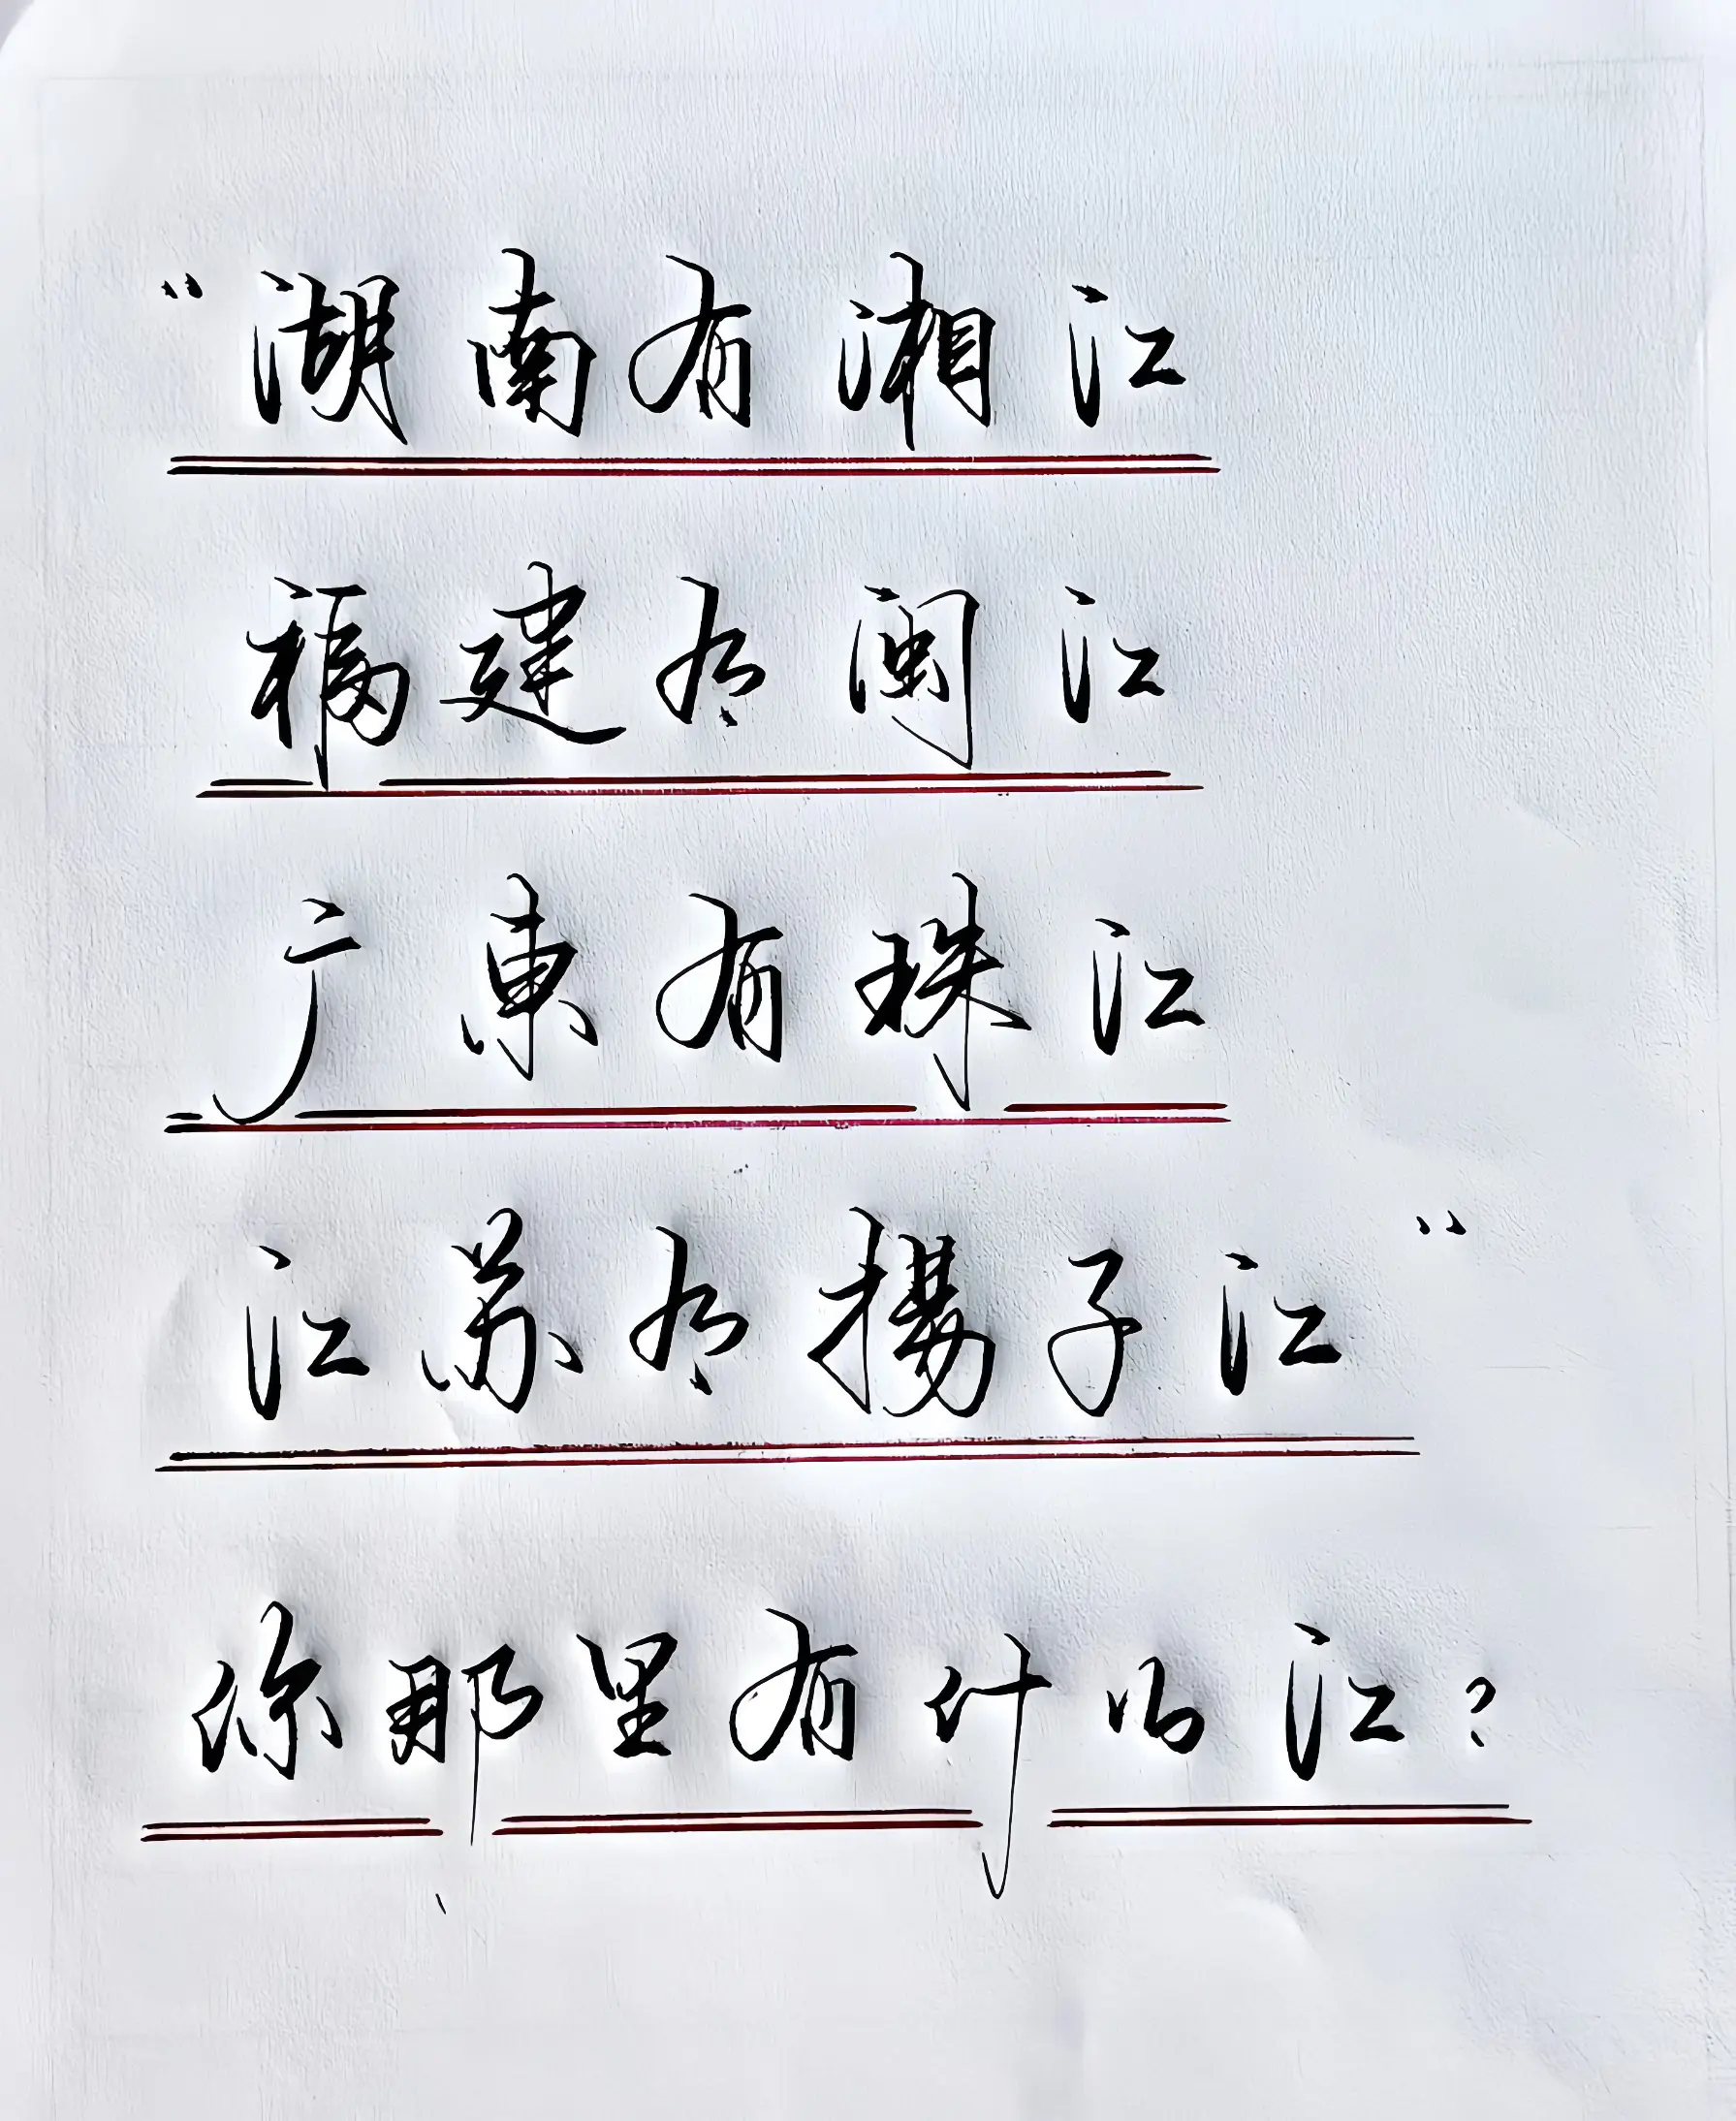 “湖南有湘江
福建有闽江
广東有珠江
江苏有揚子江”
你那里有什么江?